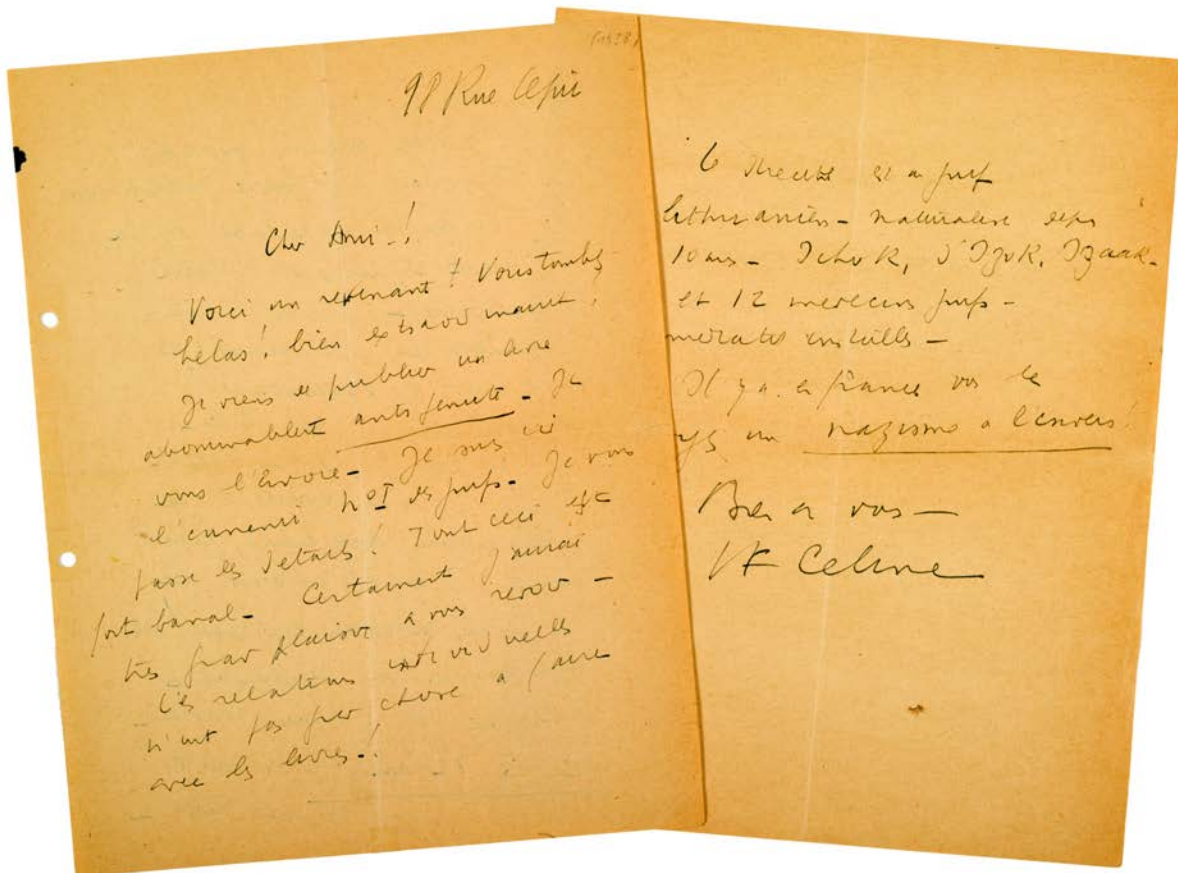 98 Rue Lepic
Cher Ami -!
Voici un revenant! Vous tombez
hélas! bien extraordinairt!
Je viens de publier un livre
abominablemt antisémite - Je
vous l'envoie - Je suis ici
l'ennemi No I des juifs - Je vous
passe les détails! Tout ceci est
fort banal - Certainement j'aurai
très grand plaisir à vous revoir -
Les relations individuelles
n'ont pas grd chose à faire
avec les livres -!
est un juif
lithuanien - naturalisé depuis
10 ans - Ichok, d'Izok, Izaak -
et 12 médecins juifs -
installés -
Il y a en france vous le
un nazisme à l'envers!
Bien à vous -
LF Celine